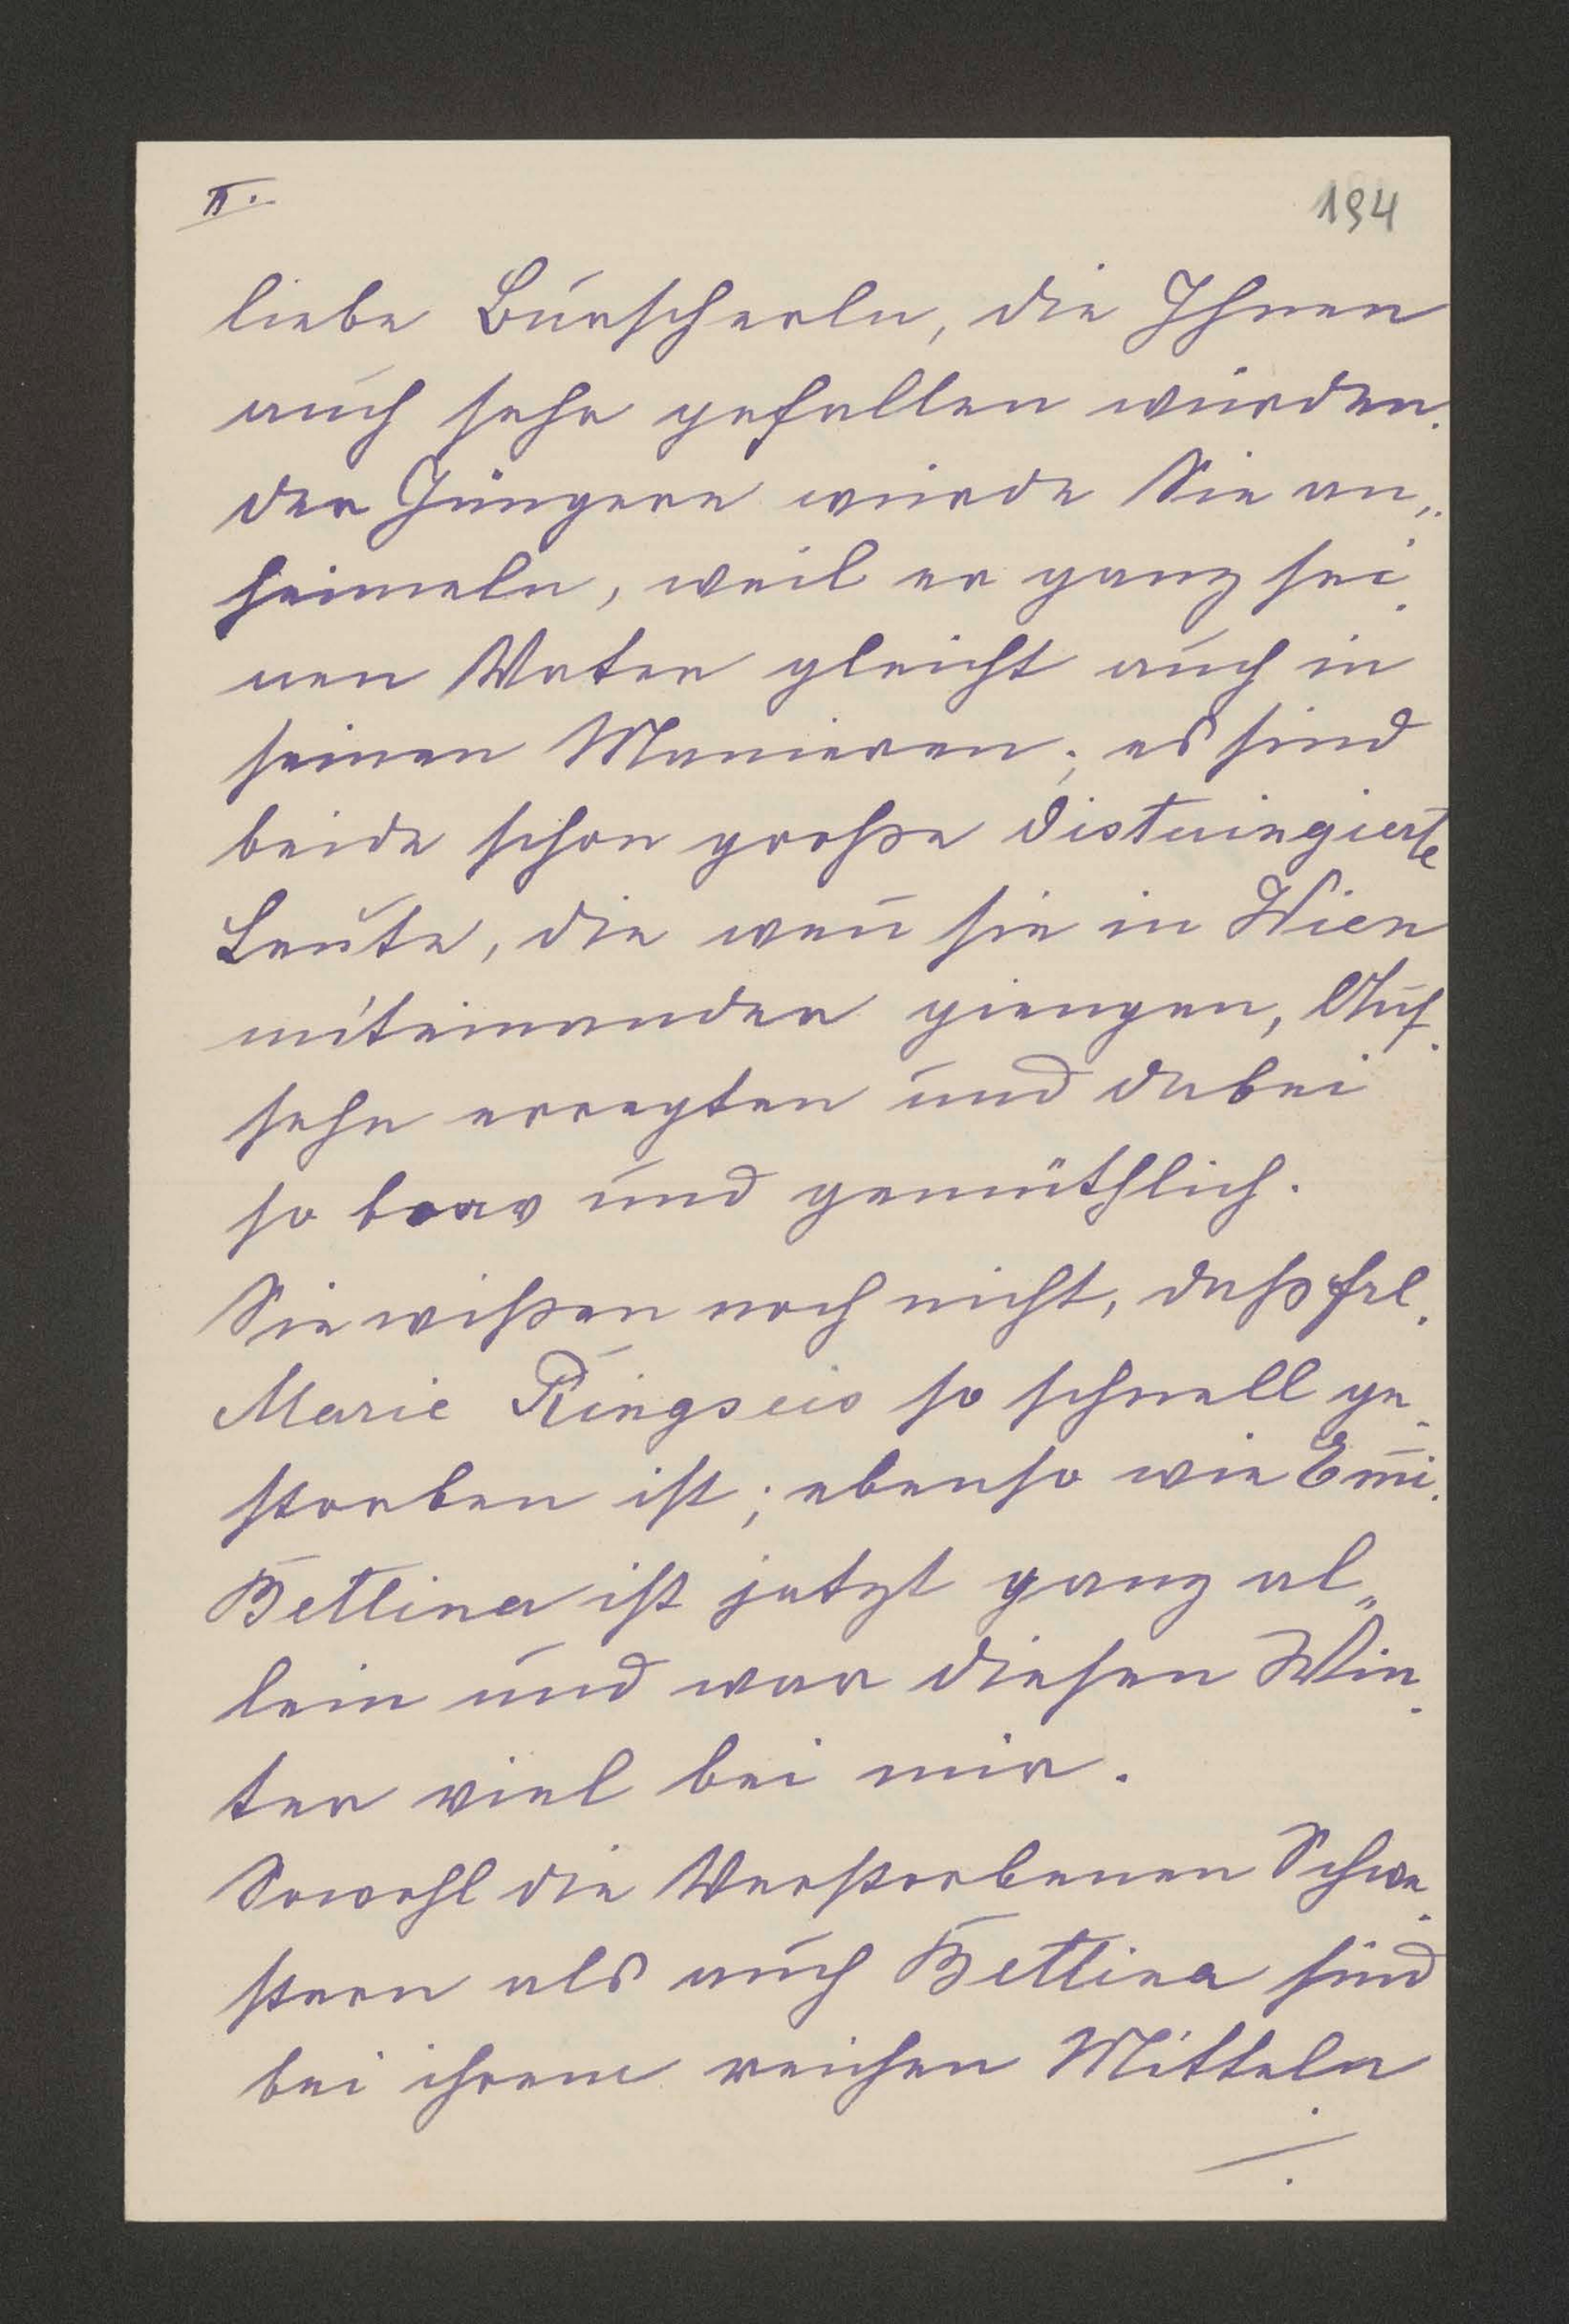 II.
194
liebe Burscherln, die Ihnen
auch sehr gefallen würden.
der Jüngere würde Sie an„
heimeln, weil er ganz sei
nen Vater gleicht auch in
seinen Manieren; es sind
beide schon große distuingierte
Leute, die weñ sie in Wien
miteinander giengen, Auf
sehn erregten und dabei
so brav und gemüthlich.
Sie wißen noch nicht, daß Frl.
Marie Ringseis so schnell ge
storben ist; ebenso wie Em̄i.
Bettina ist jetzt ganz al„
lein und war diesen Win
ter viel bei mir.
Sowohl die Verstorbenen Schwe
stern als auch Bettina sind
bei ihrem reichen Mitteln
./.